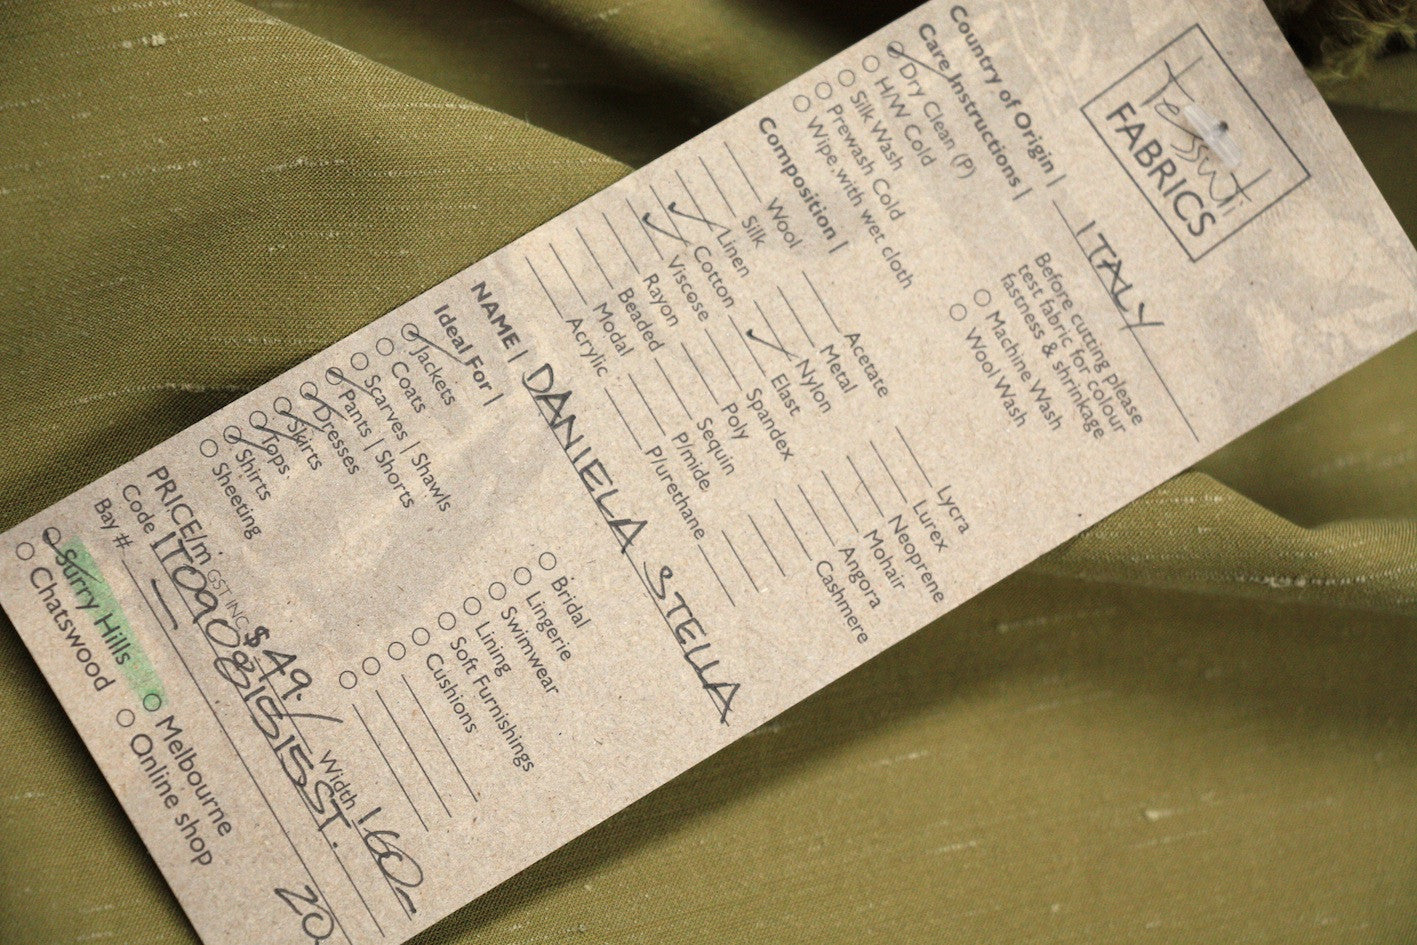 Tessuti
FABRICS
Country of Origin | ITALY
Care Instructions |
Before cutting please
test fabric for colour
fastness & shrinkage
Dry Clean (P)
H/W Cold
Silk Wash
Prewash Cold
Wipe with wet cloth
Machine Wash
Wool Wash
Composition |
Wool
Silk
Linen
Cotton
Viscose
Rayon
Beaded
Modal
Acrylic
Acetate
Metal
Nylon
Elast
Spandex
Poly
Sequin
P/mide
P/urethane
Lycra
Lurex
Neoprene
Mohair
Angora
Cashmere
NAME | DANIELA STELLA
Ideal For |
Jackets
Coats
Scarves | Shawls
Pants | Shorts
Dresses
Skirts
Tops
Shirts
Sheeting
Bridal
Lingerie
Swimwear
Lining
Soft Furnishings
Cushions
PRICE/m GST INC $49./ Width 160-
Code
Bay # — 20
Surry Hills Melbourne
Chatswood Online shop